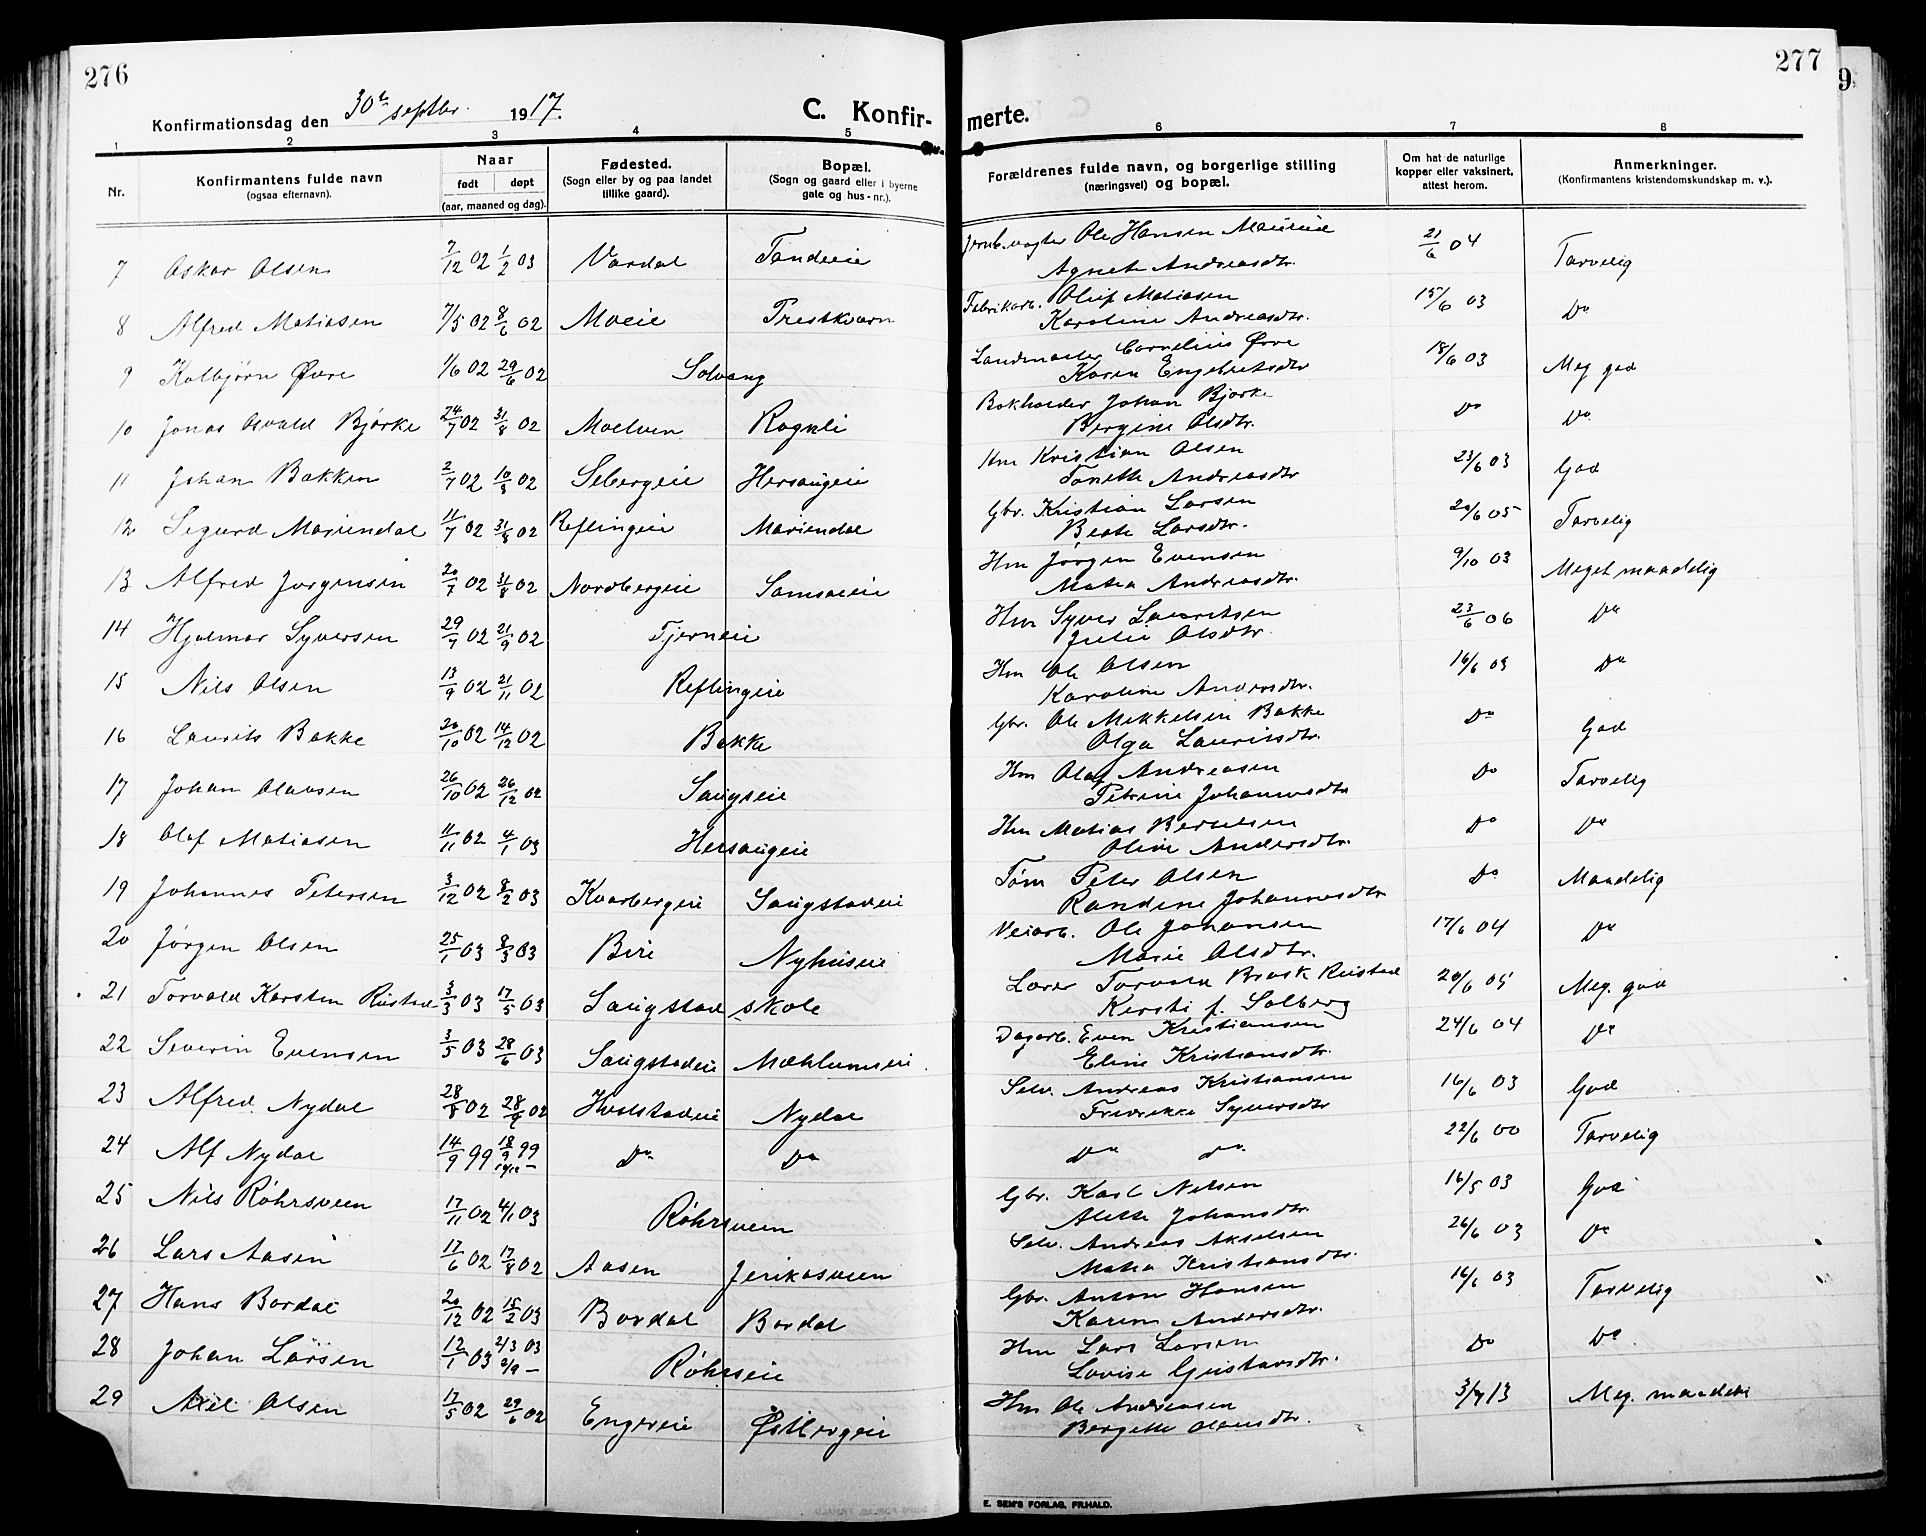 276
277
9
Konfirmationsdag den 30te septbr. 1917.
C. Konfir-
merte.
1 2 3 4 5 6 7 8
Nr.
Konfirmantens fulde navn
(ogsaa efternavn).
Naar
født døpt
(aar, maaned og dag).
Fødested.
(Sogn eller by og paa landet
tillike gaard).
Bopæl.
(Sogn og gaard eller i byerne
gate og hus-nr.).
Forældrenes fulde navn, og borgerlige stilling
(næringsvei) og bopæl.
Om hat de naturlige
kopper eller vaksinert,
attest herom.
Anmerkninger.
(Konfirmantens kristendomskundskap m. v.).
7 Oskar Olsen 7/12 02 1/2 03 Vardal Tandeeie Jernb.vogter Ole Hansen 21/6 04 Tarvelig
Agnete Andreasdtr.
8 Alfred Matiasen 7/5 02 8/6 02 Moeie Prestkvarn Fabrikarb. Oluf Matiasen 15/6 03 Do
Karoline Andreasdtr.
9 Kolbjørn Øvre 1/6 02 29/6 02 Solvang Landmaaler Cornelius Øvre 18/6 03 Meg god
Karen Engebretsdtr
10 Jonas Osvald Bjørke 24/7 02 31/8 02 Moelven Rognli Bokholder Johan Bjørke Do Do
Bergine Olsdtr.
11 Johan Bakken 2/7 02 10/8 02 Sebergeie Hersaugeie Hm Kristian Olsen 23/6 03 God
Tonette Andreasdtr
12 Sigurd Mariendal 11/7 02 31/8 02 Reflingeie Mariendal Gbr. Kristian Larsen 20/6 05 Tarvelig
Beate Larsdtr.
13 Alfred Jørgensen 20/7 02 31/8 02 Nordbergeie Samsaeie Hm Jørgen Evensen 9/10 03 Meget maadelig
Matea Andreasdtr.
14 Hjalmar Syversen 29/7 02 21/9 02 Tjerneie Hm Syver Lauritsen 23/6 06 Do
Julie Olsdtr.
15 Nils Olsen 13/9 02 21/11 02 Reflingeie Hm Ole Olsen 16/6 03 Do
Karoline Andersdtr.
16 Laurits Bakke 20/10 02 14/12 02 Bakke Gbr. Ole Mikkelsen Bakke Do God
Olga Lauritsdtr.
17 Johan Olavsen 26/10 02 26/12 02 Saugseie Hm Olaf Andreasen Do Tarvelig
Petrine Johannesdtr
18 Olaf Matiasen 11/11 02 4/1 03 Hersaugeie Hm Matias Bertelsen Do Do
Oline Andersdtr.
19 Johannes Petersen 3/12 02 8/2 03 Kvarbergeie Saugstadeie Tøm Peter Olsen Do Maadelig
Randine Johannesdtr
20 Jørgen Olsen 25/1 03 8/3 03 Biri Nyhuseie Veiarb. Ole Johansen 17/6 04 Do
Marie Olsdtr.
21 Torvald Karsten Rustad 3/3 03 17/5 03 Saugstad skole Lærer Torvald Brask Rustad 20/6 05 Meg. god
Kersti f. Solberg
22 Severin Evensen 3/5 03 28/6 03 Saugstadeie Mæhlumseie Dagarb. Even Kristiansen 24/6 04 Do
Eline Kristiansdtr.
23 Alfred Nydal 28/8 02 28/9 02 Hvalstadeie Nydal Selv. Andreas Kristiansen 16/6 03 God
Fredrikke Syversdtr
24 Alf Nydal 14/9 99 18/9 99 Do Do Do Do 22/6 00 Tarvelig
25 Nils Røhrsveen 17/11 02 4/1 03 Røhrsveen Gbr. Karl Nilsen 16/5 03 God
Alette Johansdtr.
26 Lars Aasen 17/6 02 17/8 02 Aasen Jerikosveen Selv. Andreas Akselsen 26/6 03 Do
Matea Kristiansdtr.
27 Hans Bordal 20/12 02 15/2 03 Bordal Bordal Gbr. Anton Hansen 16/6 03 Tarvelig
Karen Andersdtr.
28 Johan Larsen 12/1 03 21/3 03 Røhrseie Hm Lars Larsen Do Do.
2/9 - Lovise Gustavsdtr.
29 Axel Olsen 17/5 02 29/6 02 Engereie Østbergeie Hm Ole Andreasen 3/7 13 Meg. maadeli
Bergitte Olausdtr.
E. SEM'S FORLAG, FR.HALD.